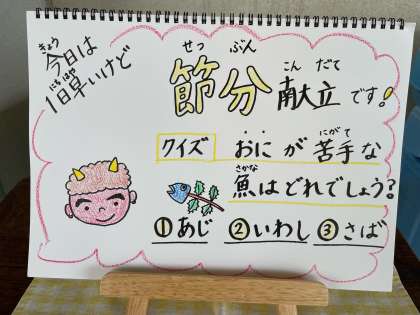 きょう
今日は
にち はや
1日早いけど
せつ ぶん こん だて
節分献立です!
にがて
クイズ おにが苦手な
さかな
魚はどれでしょう?
①あじ ②いわし ③さば